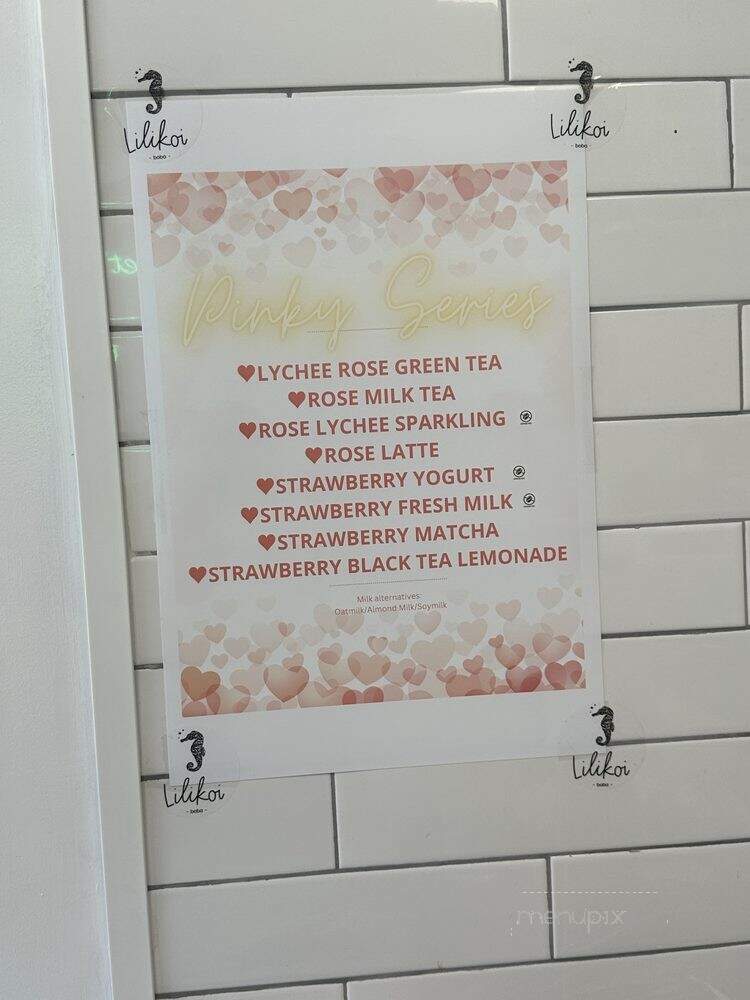 Lilikoi
- boba -
Lilikoi
- boba -
Pinky Series
♥LYCHEE ROSE GREEN TEA
♥ROSE MILK TEA
♥ROSE LYCHEE SPARKLING
♥ROSE LATTE
♥STRAWBERRY YOGURT
♥STRAWBERRY FRESH MILK
♥STRAWBERRY MATCHA
♥STRAWBERRY BLACK TEA LEMONADE
Milk alternatives:
Oatmilk/Almond Milk/Soymilk
Lilikoi
- boba -
Lilikoi
- boba -
menupix